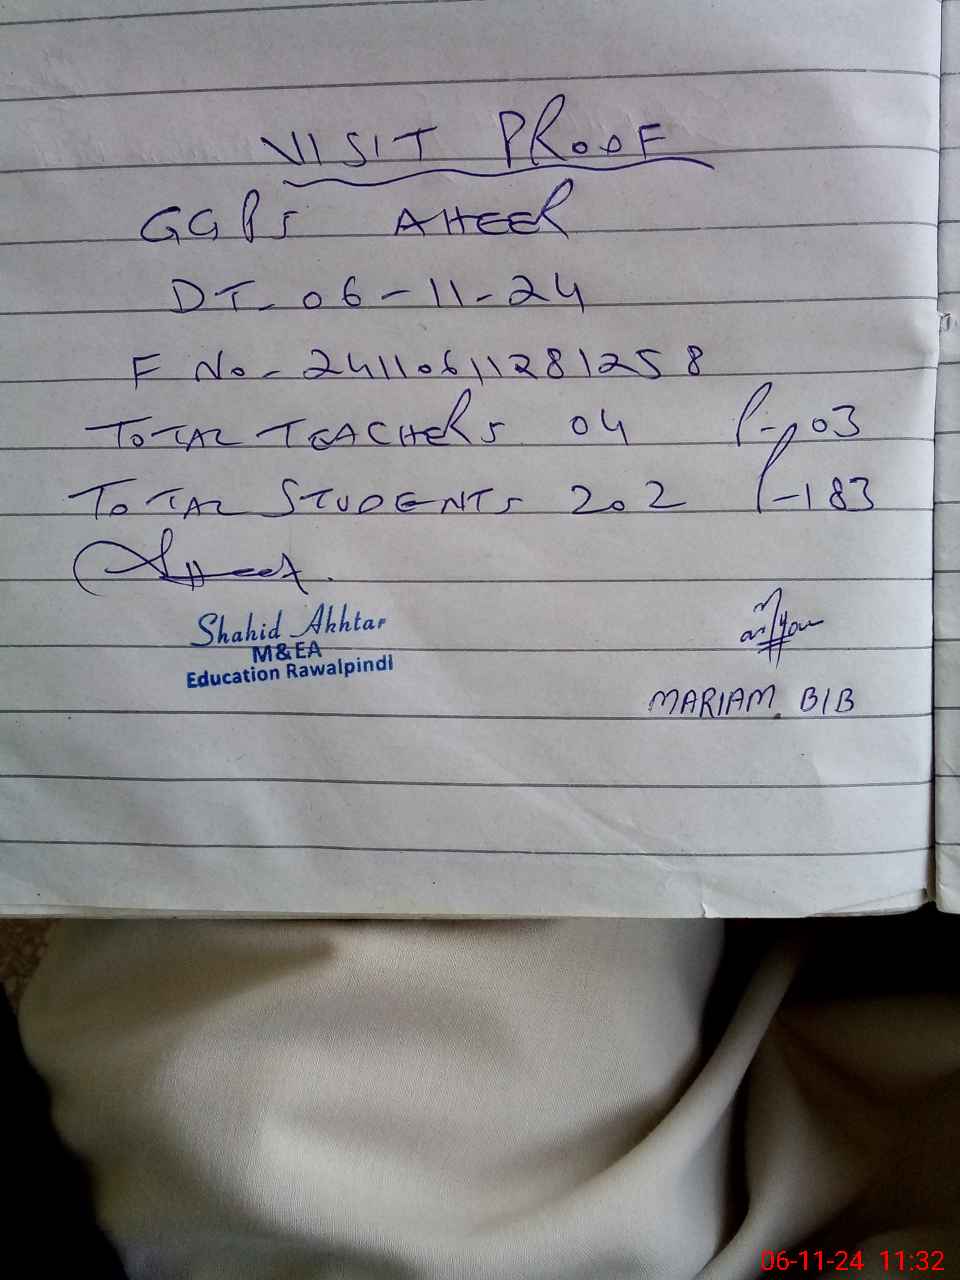 VISIT PROOF
GGPS AHEER
DT- 06-11-24
F No- 24110611281258
TOTAL TEACHERS 04 P-03
TOTAL STUDENTS 202 P-183
Shahid Akhtar
M&EA
Education Rawalpindi
MARIAM BIB
06-11-24 11:32